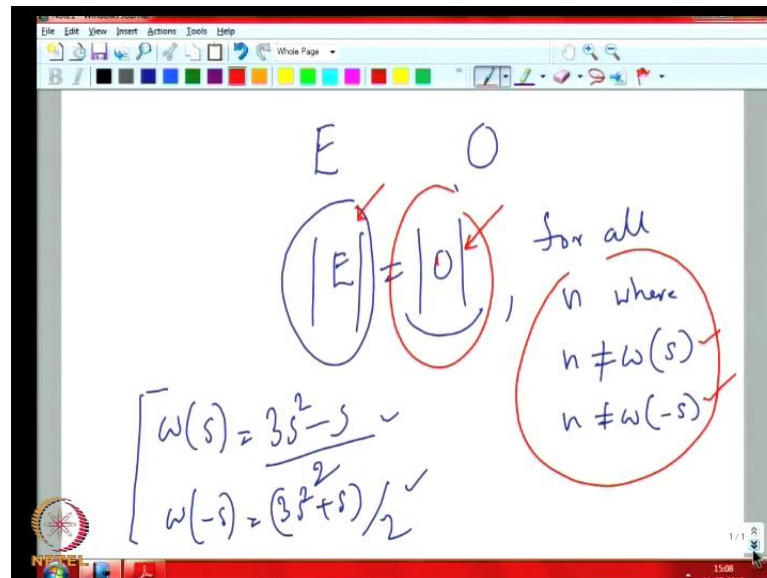 File Edit View Insert Actions Tools Help
Whole Page
B I
E O
|E| = |O|, for all
n where
n ≠ ω(s)
n ≠ ω(-s)
ω(s) = 3s² - s / 2
ω(-s) = (3s² + s)/2
NPTEL
1/1
15:08